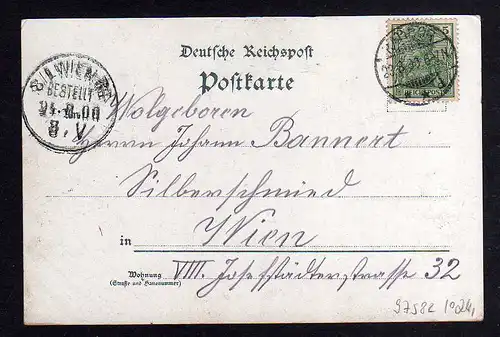 Deutsche Reichspost
Postkarte
8/1 WIEN
BESTELLT
24.8.00
8.V
5
REICHSPOST
Wolgeboren
Herrn Johann Bannert
Silberschmied
in Wien
Wohnung
(Straße und Hausnummer)
VIII. Josefstädterstrasse 32
97582